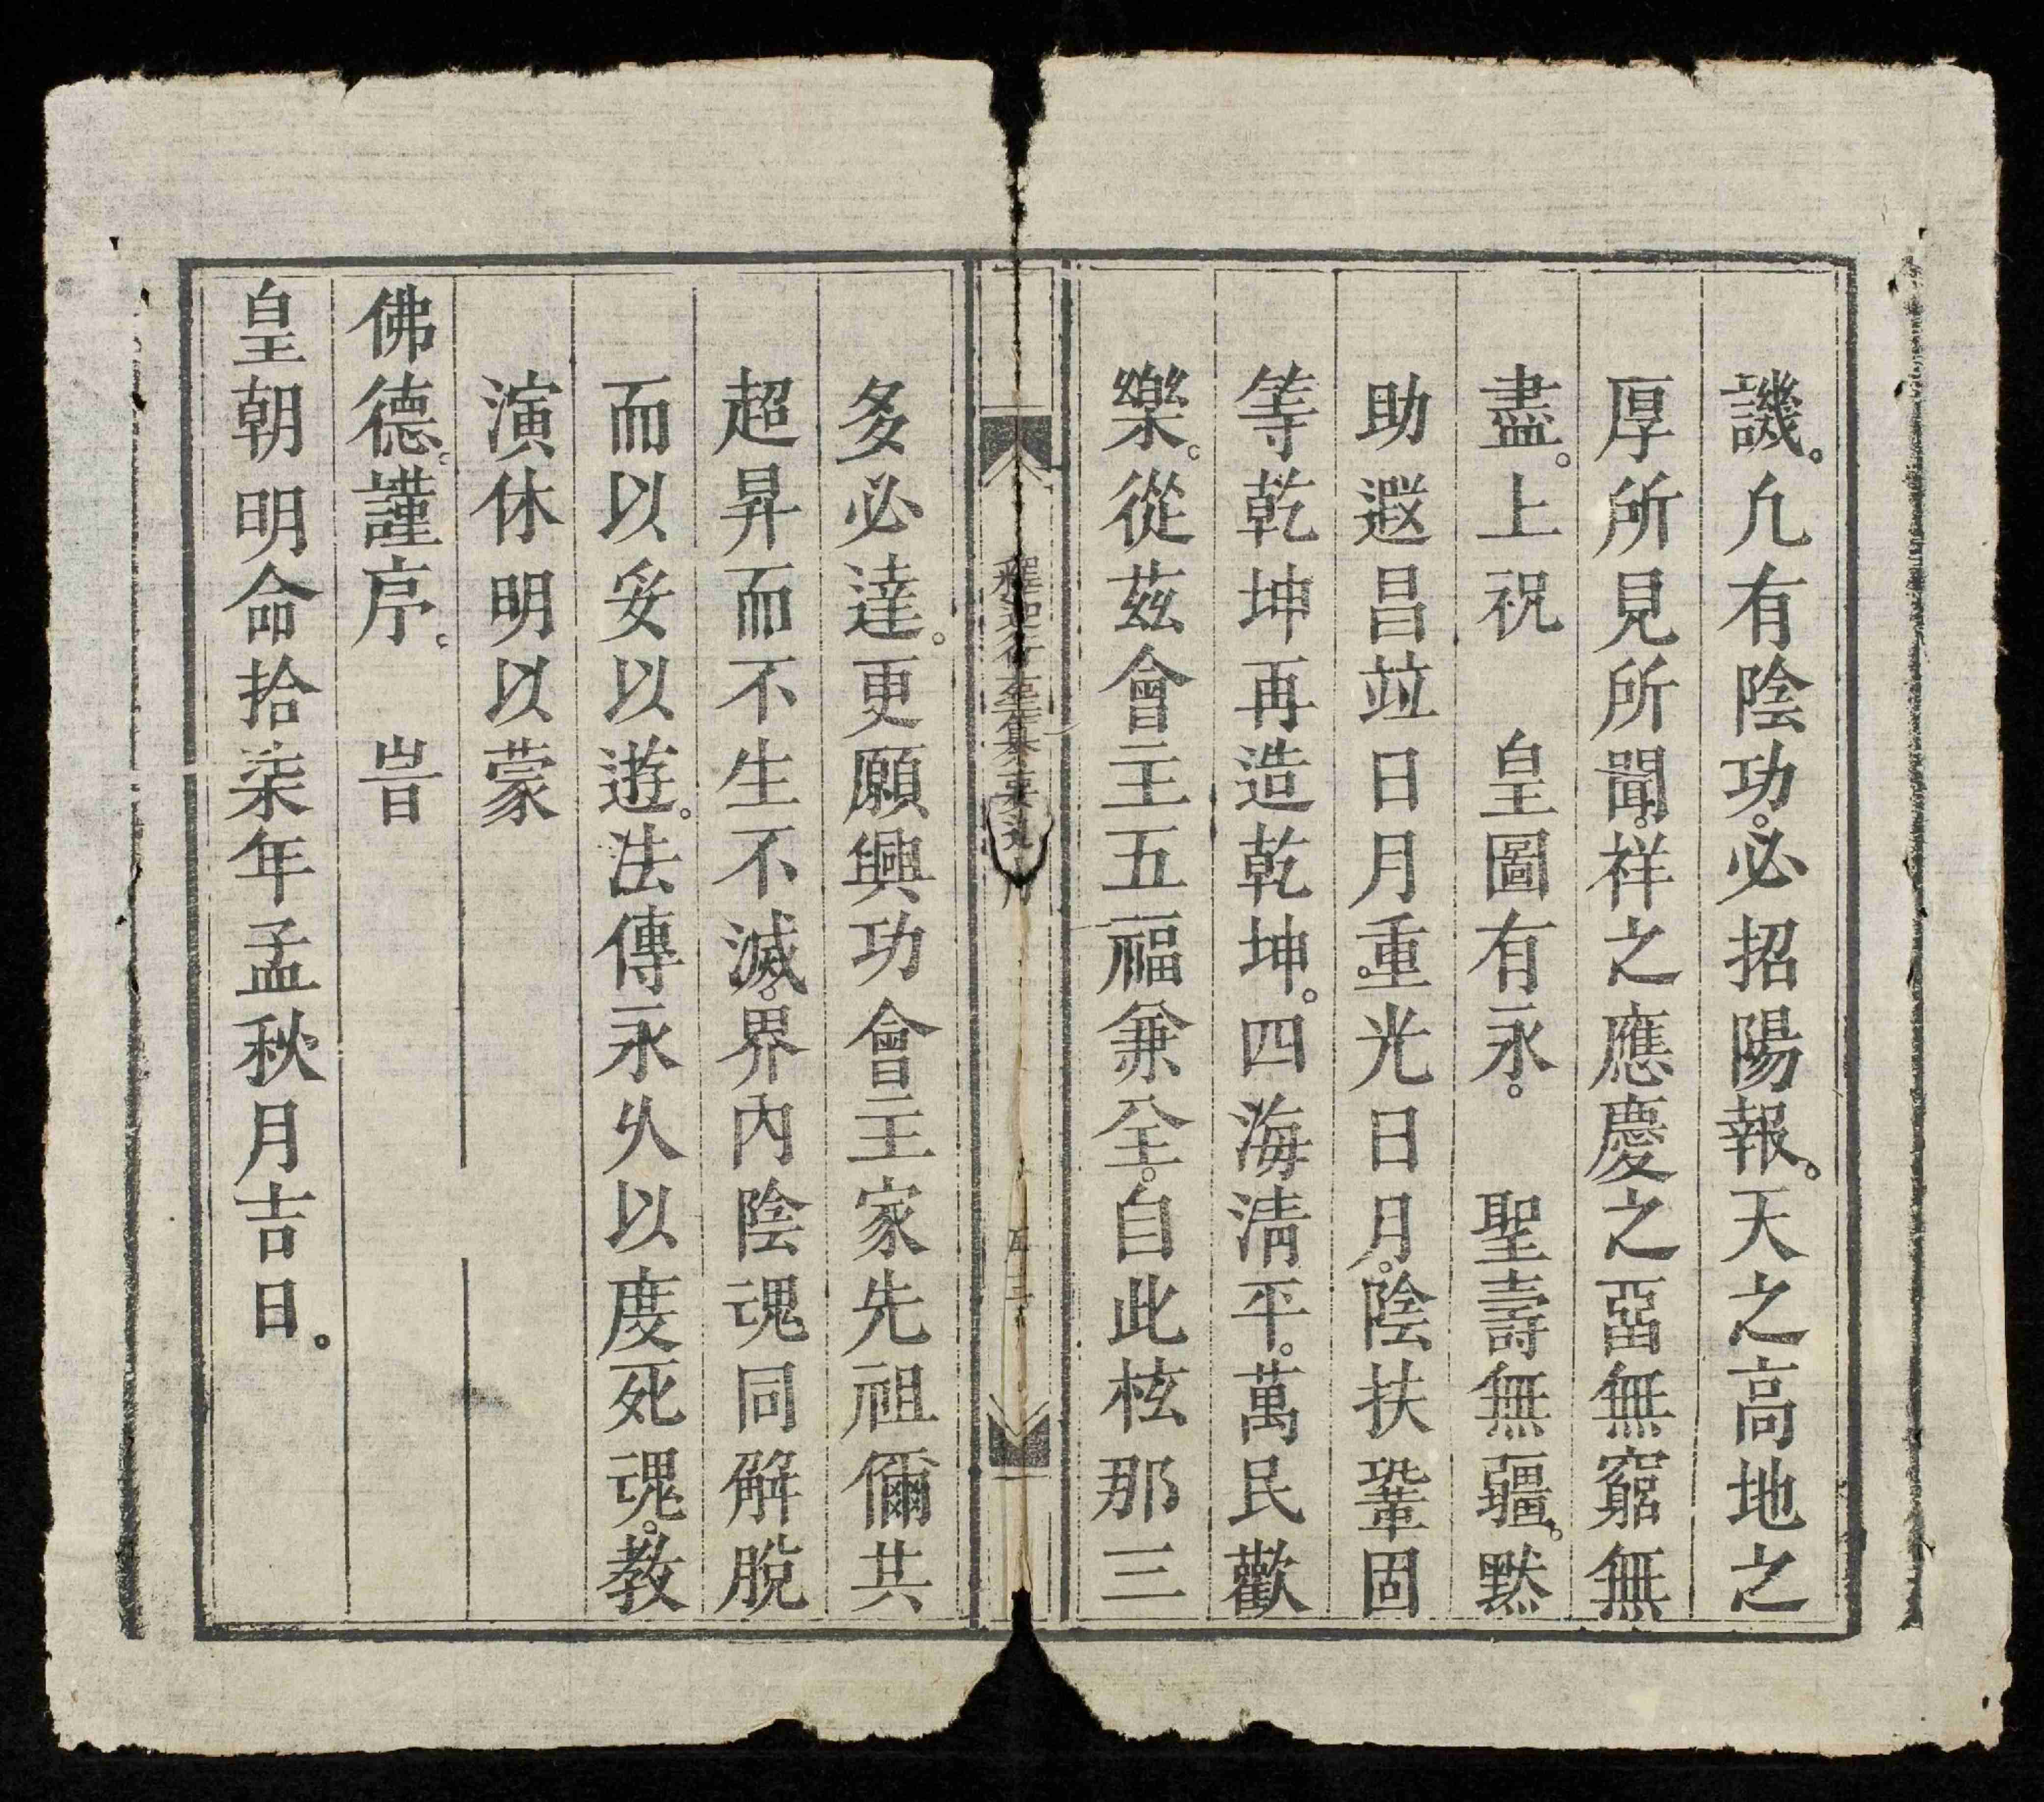 譏。凢有陰功。必招陽報。天之高地之
厚所見所聞。祥之應慶之畱無窮無
盡。上祝　皇圖有永。　聖壽無疆。黙
助遐昌竝日月重。光日月。陰扶鞏固
等乾坤再造乾坤。四海清平。萬民歡
樂。從茲會主五福兼全。自此核那三
多必達。更願興功會主家先祖儞共
超昇而不生不滅。界內陰魂同解脫
而以妥以遊。法傳永久以度死魂。教
演休明以蒙
佛德。謹序。　旹
皇朝明命拾柒年孟秋月吉日。